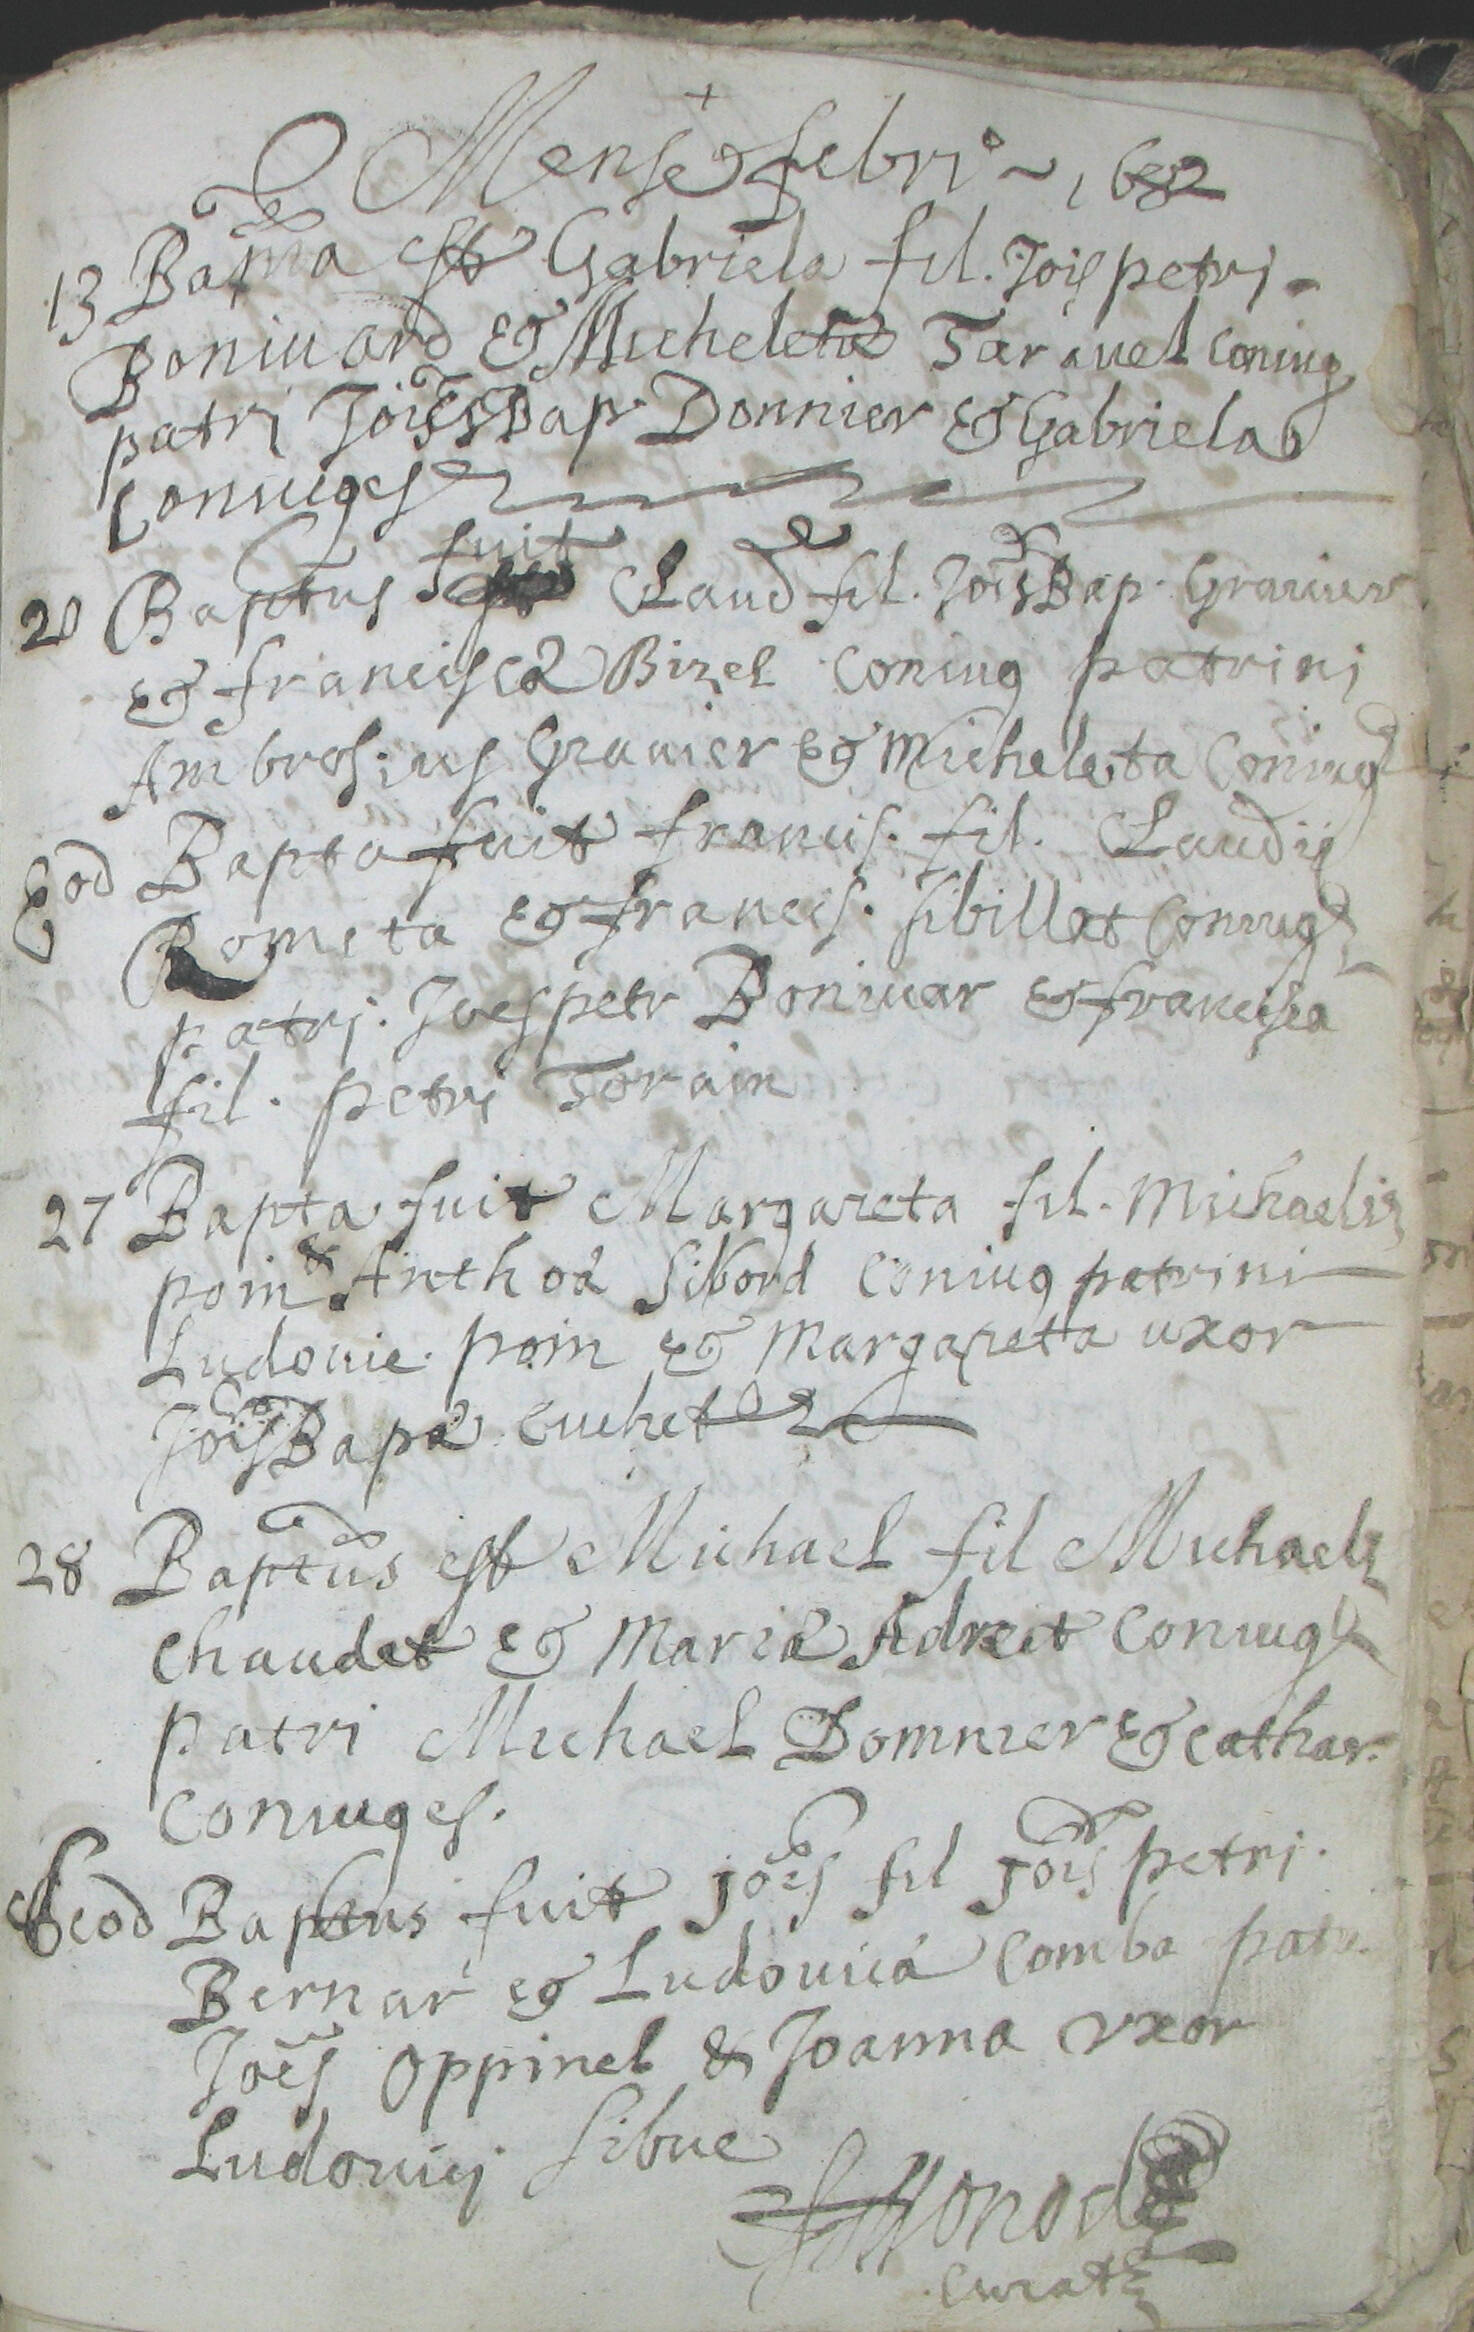 +
Mense febri° 1632
13 Bap̃ma est Gabriela fil. Jois petri
Boniuard & Micheletæ Taravel coniug
patri Joiès Bap. Donnier & Gabriela
coniuges
20 Baptus fuit Claud fil. Jois Bap. Grauier
& francisca Bizel coniug patrini
Ambrosius Grauier & Micheleta coniug
Eod Bapta fuit francis. fil. Claudij
Rometa & francis. sibillat coniug
patrj. Joes petr Boniuar & francisca
fil. petri Torain
27 Bapta fuit Margareta fil. Michaelis
poin & Anthoa Sibord coniug patrini
Ludouic. poin & Margareta uxor
Jois Bapa cuchet
28 Baptus est Michael fil Michaelis
Chaudet & Maria Adreit coniug
patri Michael Donnier & cathar.
coniuges.
Eod Baptus fuit Joes fil Jois petri.
Bernar & Ludouica comba patr.
Joes Oppinel & Joanna vxor
Ludouicj Sibue
Monod
curat